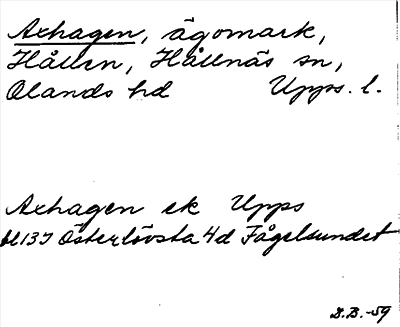 Axhagen, ägomark,
Hållen, Hållnäs sn,
Olands hd Upps. l.
Axhagen ek Upps
bl 137 Österlövsta 4d Fågelsundet
D.B.-59